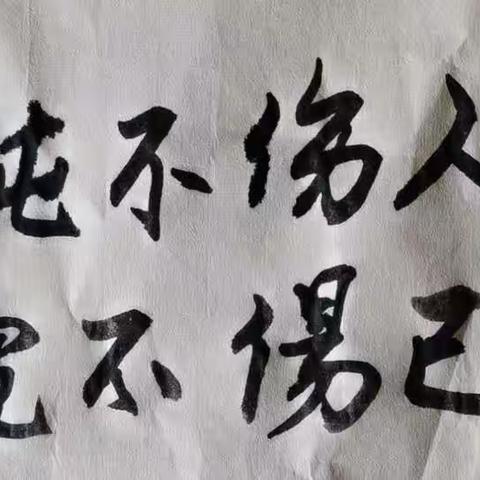 不伤人
不傷己